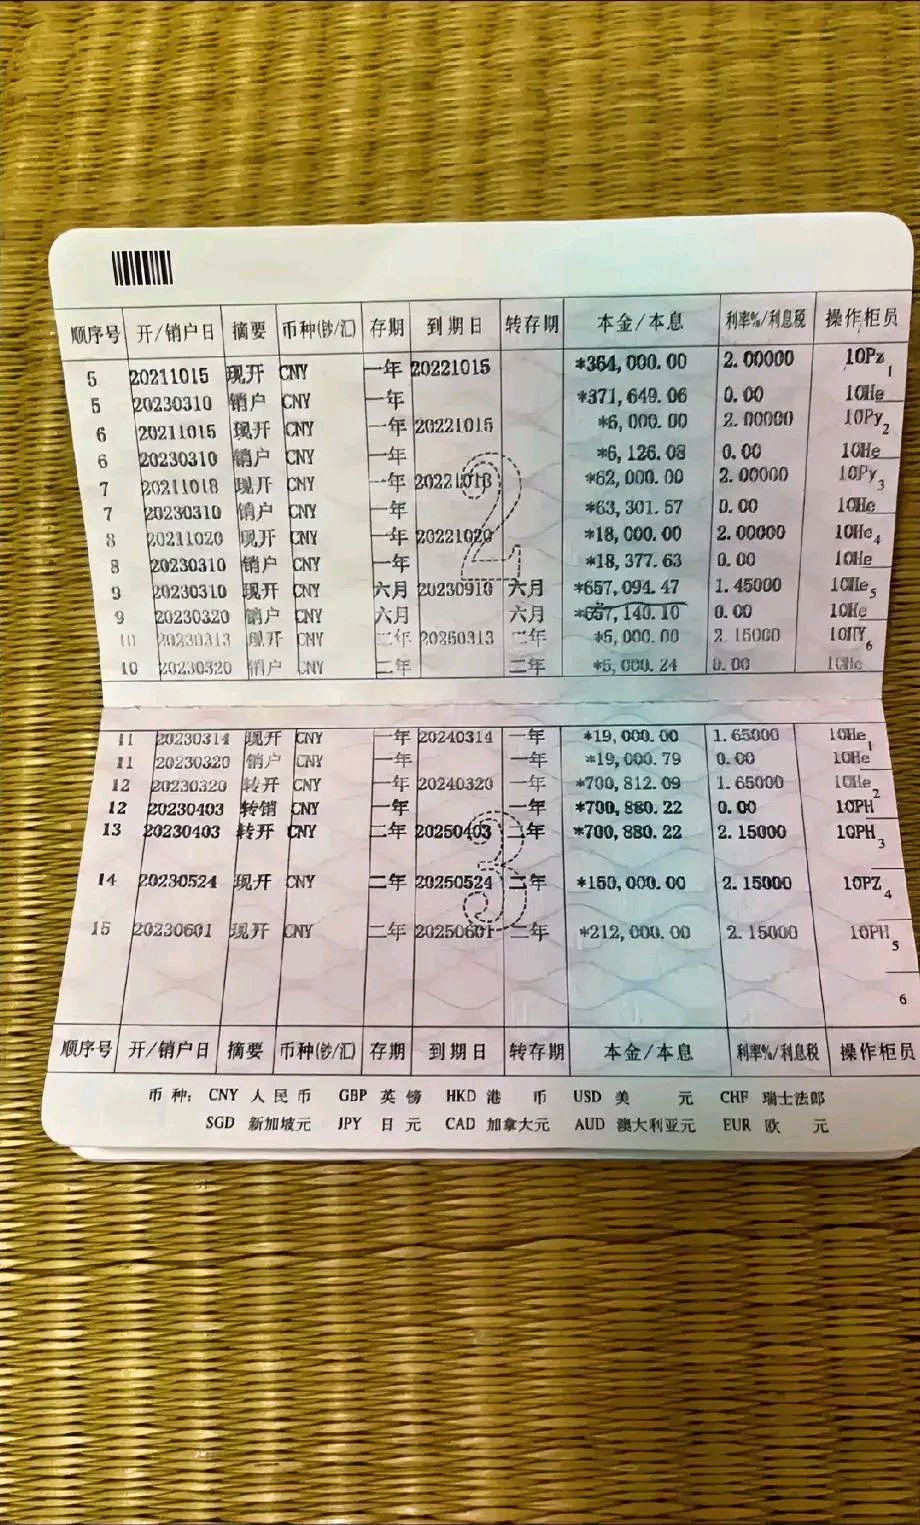 顺序号 开/销户日 摘要 币种(钞/汇) 存期 到期日 转存期 本金/本息 利率%/利息税 操作柜员
5 20211015 现开 CNY 一年 20221015 *364,000.00 2.00000 10Pz 1
5 20230310 销户 CNY 一年 *371,649.06 0.00 10He
6 20211015 现开 CNY 一年 20221015 *6,000.00 2.00000 10Py 2
6 20230310 销户 CNY 一年 *6,126.08 0.00 10He
7 20211018 现开 CNY 一年 20221018 *62,000.00 2.00000 10Py 3
7 20230310 销户 CNY 一年 *63,301.57 0.00 10He
8 20211020 现开 CNY 一年 20221020 *18,000.00 2.00000 10He 4
8 20230310 销户 CNY 一年 *18,377.63 0.00 10He
9 20230310 现开 CNY 六月 20230910 六月 *657,094.47 1.45000 10He 5
9 20230320 销户 CNY 六月 六月 *657,140.10 0.00 10He
10 20230313 现开 CNY 二年 20250313 二年 *5,000.00 2.15000 10HY 6
10 20230320 销户 CNY 二年 二年 *5,000.24 0.00 10He
2
11 20230314 现开 CNY 一年 20240314 一年 *19,000.00 1.65000 10He 1
11 20230320 销户 CNY 一年 一年 *19,000.79 0.00 10He
12 20230320 转开 CNY 一年 20240320 一年 *700,812.09 1.65000 10He 2
12 20230403 转销 CNY 一年 一年 *700,880.22 0.00 10PH
13 20230403 转开 CNY 二年 20250403 二年 *700,880.22 2.15000 10PH 3
14 20230524 现开 CNY 二年 20250524 二年 *150,000.00 2.15000 10PZ 4
15 20230601 现开 CNY 二年 20250601 二年 *212,000.00 2.15000 10PH 5
6
3
顺序号 开/销户日 摘要 币种(钞/汇) 存期 到期日 转存期 本金/本息 利率%/利息税 操作柜员
币种: CNY 人民币 GBP 英镑 HKD 港币 USD 美元 CHF 瑞士法郎
SGD 新加坡元 JPY 日元 CAD 加拿大元 AUD 澳大利亚元 EUR 欧元